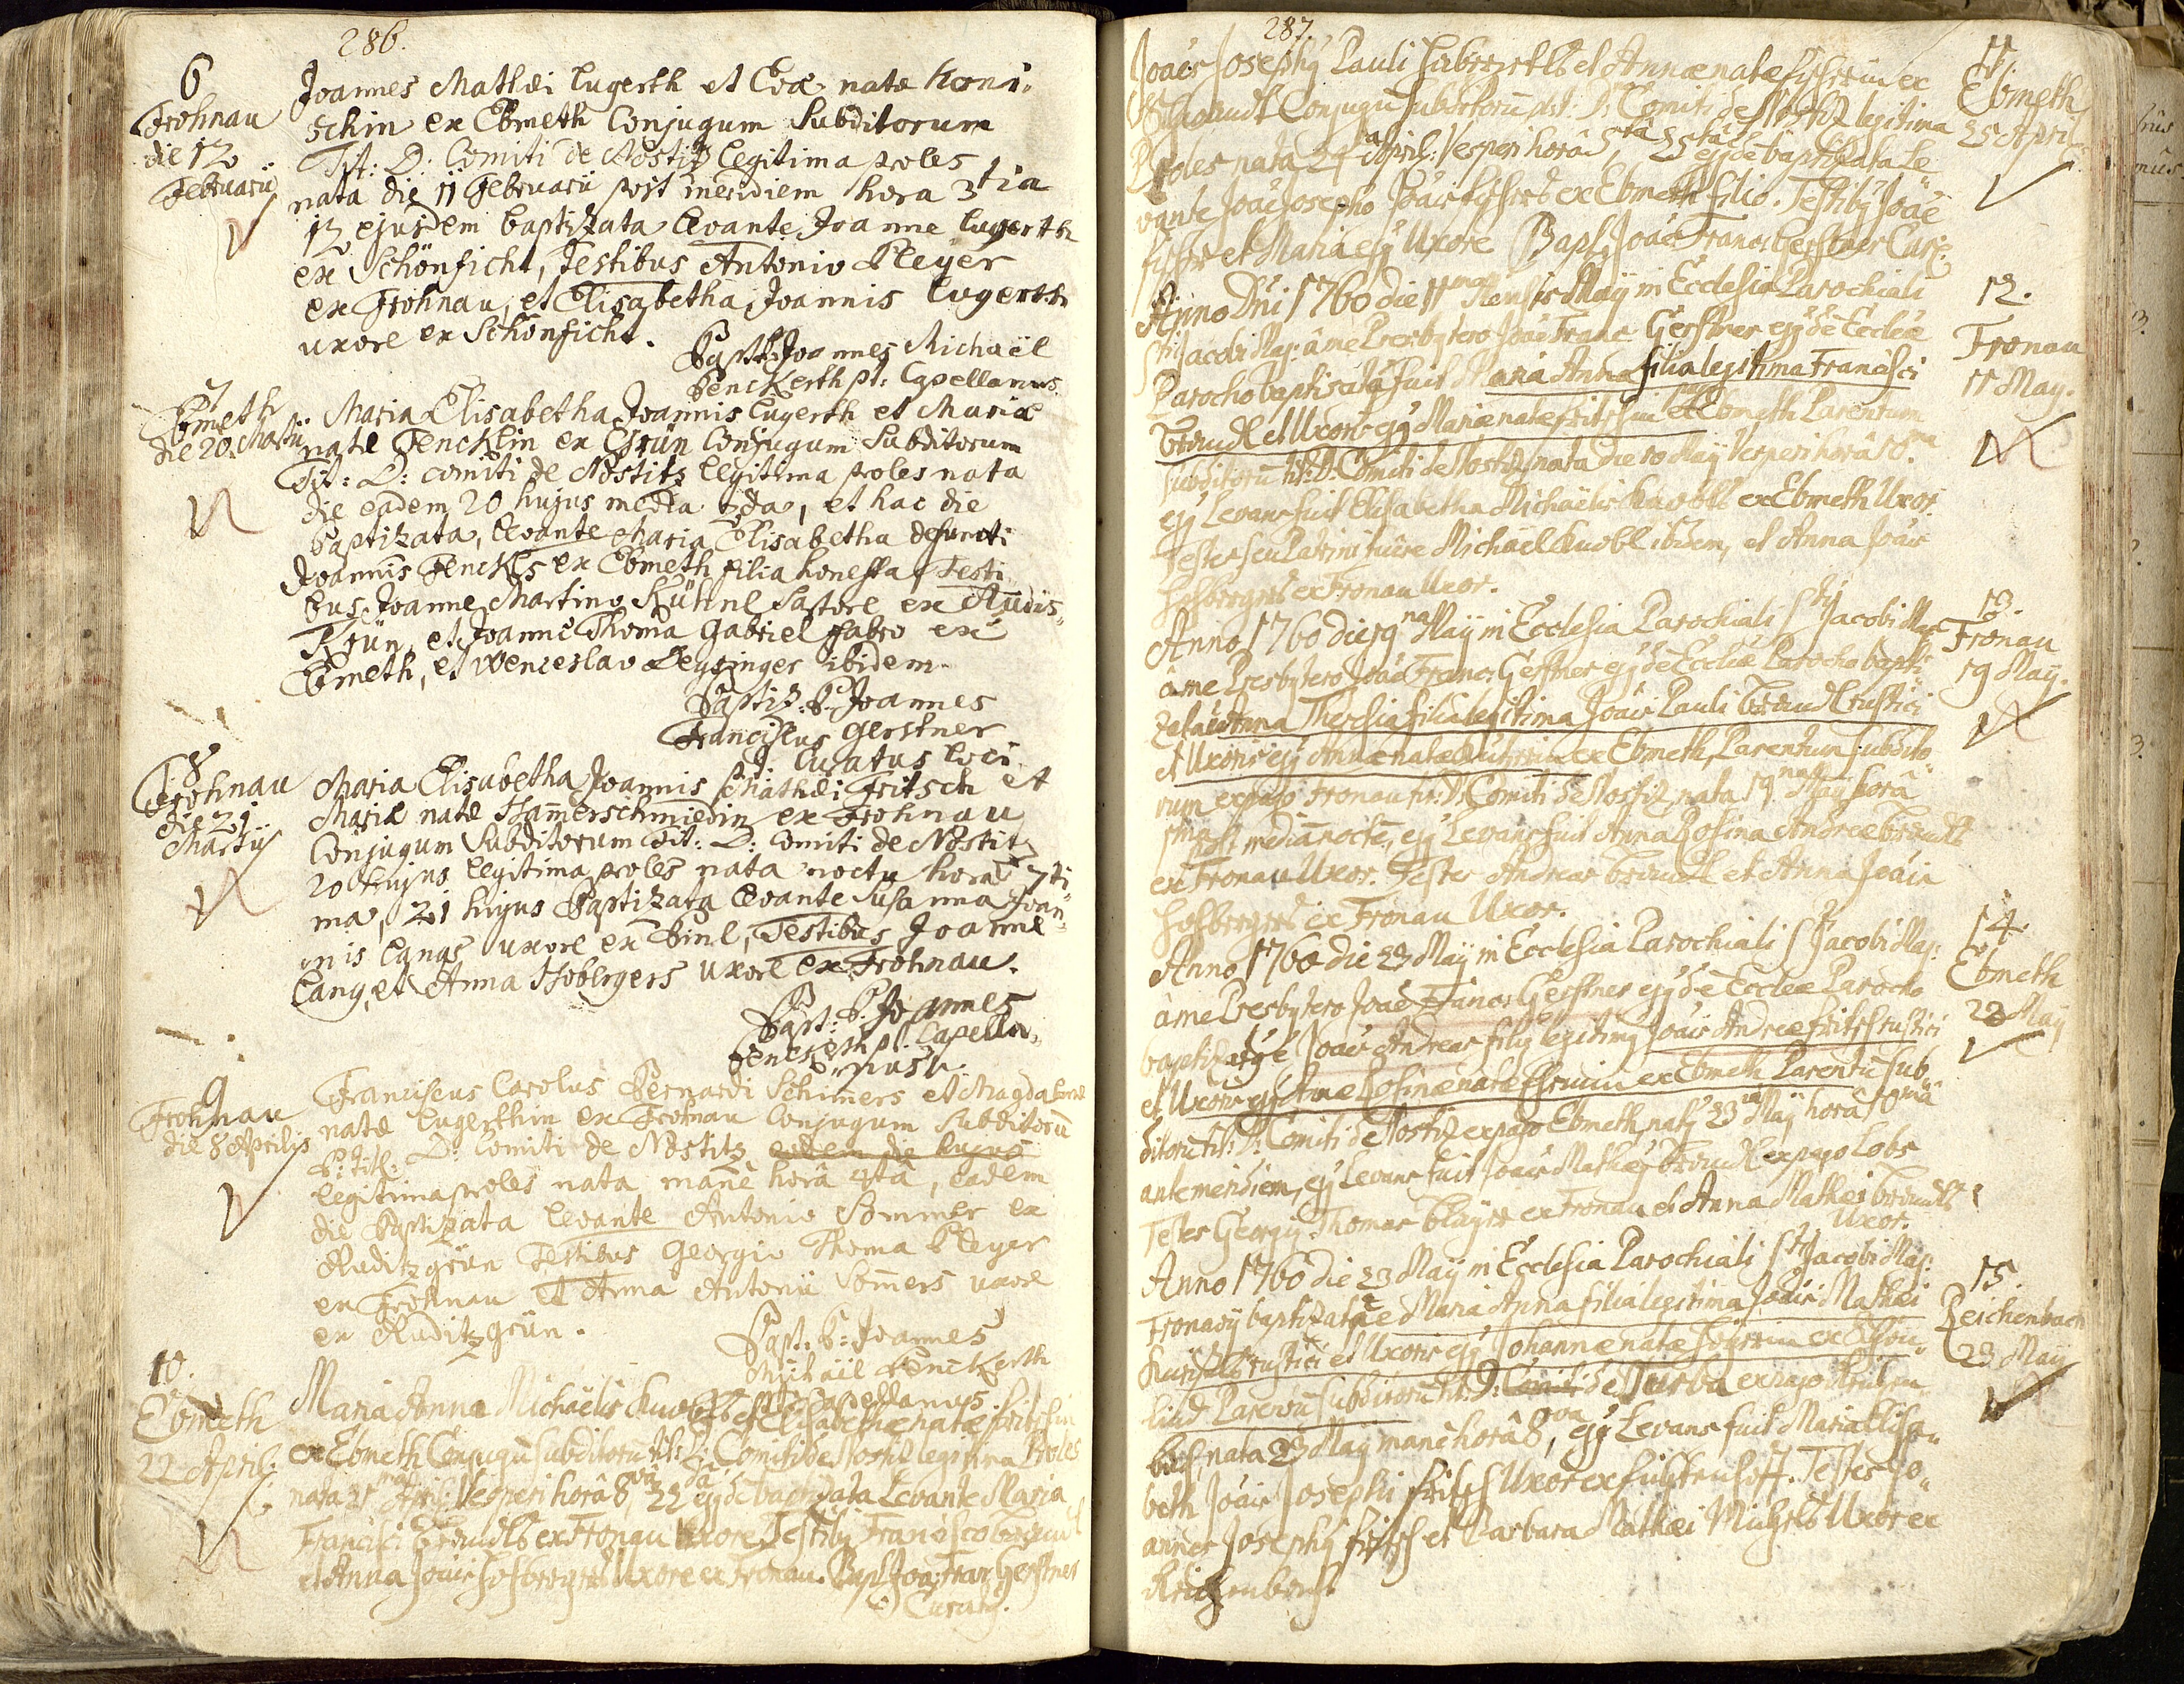 286.
6
Frohnau
die 12
Februarii
Joannes Mathæi Lugerth et Evæ natæ Honi-
schin ex Ebmeth Conjugum Subditorum
Tit: D: Comiti de Nostitz legitima proles
nata die 11 Februarii post meridiem hora 3tia
12 ejusdem baptizata levante Joanne Lugerth
ex Schönficht, Testibus Antonio Pleyer
ex Frohnau, et Elisabetha Joannis Lugerth
uxore ex Schönficht.
Bapt: Joannes Michaël
Penckerth p.t: Capellanus
7
Ebmeth
die 20 Martii
Maria Elisabetha Joannis Lugerth et Mariæ
natæ Fencklin ex Grün Conjugum Subditorum
Tit: D: comiti de Nostitz legitima proles nata
die eadem 20 hujus media 3tia, et hac die
baptizata, levante Maria Elisabetha defuncti
Joannis Fenckls ex Ebmeth filia honesta, Testi
bus Joanne Martino Kühnl Sartore ex Rudis-
grün, et Joanne Thoma Gabriel fabro ex
Ebmeth, et Wenceslao ibidem.
Baptiz: P. Joannes
Franciscus Gerstner
Curatus loci
8
Frohnau
die 21
Martii
Maria Elisabetha Joannis Mathæi Fritsch et
Mariæ natæ Hamerschmiedin ex Frohnau
Conjugum Subditorum Tit: D: Comiti de Nostitz
20 hujus legitima proles nata noctu hora 7ti-
ma, 21 hujus Baptizata levante Susanna Joan-
nis Langs uxore ex Binl, Testibus Joanne
Lang, et Anna Hobergers uxore ex Frohnau.
Bapt: P. Joannes
Penckerth p.t. Capella-
nus
9
Frohnau
die 8 Aprilis
Franciscus Carolus Bernardi Schimers et Magdalenæ
natæ Lugerthin ex Frohnau Conjugum Subditorū
P: Tit: D: Comiti de Nostitz eadem die hujus
legitima proles nata manè horâ 4tâ, eadem
die Baptizata levante Antonio Sommer ex
Ruditzgrün Testibus Georgio Thoma Pleyer
ex Frohnau et Anna Antonii Somers uxore
ex Ruditzgrün.
Bapt: P: Joannes
Michaël Penckerth
Capellanus
10.
Ebmeth
22 April:
Maria Anna Michaëlis Knobls et Elisabethæ natæ fritschin
ex Ebmeth Conjugū subditorū tit: D: Comiti de Nostitz legitima Proles
nata 21ma April: Vesperi horâ 8va, 22da ejsdē baptizata Levante Maria
Francisci Brändls ex Fronau Uxore Testibꝰ Francisco Brändl
et Anna Joāis Hofbergers Uxore ex Fronau. Bapt. Joa: Fran: Gerstner
Curatꝰ.
287.
Joāis Josephꝰ Pauli et Annæ natæ fischerin ex
Conjugū subditorū tit: D: Comiti de Nostitz legitima
Proles nata 24ta April: Vesperi horâ 5tâ 25tâ ejsdē baptizata Le-
vante Joāe Josepho Joāis fischers ex Ebmeth filio. Testibꝰ Joāe
fischer et Mariâ ejꝰ Uxore Bapt: Joāes Franc: Gerstner Cur:
11.
Ebmeth
25 April:
Anno Dni 1760 die 11ma Mensis Maÿ in Ecclesia Parochiali
Sti Jacobi Maj: â me Presbytero Joāe Franc Gerstner ejsdē Eccliæ
Parocho baptizata fuit Maria Anna filia legitima Francisci
Brändl et Uxoris ejꝰ Mariæ natæ fritschin ex Ebmeth Parentum
subditorū tit: D: Comiti de Nostitz nata die 10 Maÿ Vesperi horâ 10.ma
ejꝰ Levans fuit Elisabetha Michaëlis Knobls ex Ebmeth Uxor.
Testes seu Patrini fuêre Michaël Knobl ibidem, et Anna Joāis
Hofbergers ex Fronau Uxor.
12.
Fronau
11 May.
Anno 1760 die 19na Maÿ in Ecclesia Parochiali Sti Jacobi Maj:
â me Presbytero Joāe Franc: Gerstner ejsdē Eccliæ Parocho bapti-
zata ē Anna Theresia filia legitima Joāis Pauli Brändl rustici
et Uxoris ejꝰ Annæ natæ ex Ebmeth, Parentum subdito-
rum ex pago Fronau tit: D: Comiti de Nostitz, nata 19na Maÿ horâ
1ma post mediā noctē, ejꝰ Levans fuit Anna Rosina Andreæ Brändls
ex Fronau Uxor. Testes Andreas Brändl et Anna Joāis
Hofbergers ex Fronau Uxor.
13.
Fronau
19 May.
Anno 1760 die 23 Maÿ in Ecclesia Parochiali S Jacobi Maj:
â me Presbytero Joāe Franc: Gerstner ejsdē Eccliæ Parocho
baptizatꝰ ē Joāes Andreas filiꝰ legitimꝰ Joāis Andreæ fritsch rustici
et Uxoris ejꝰ Annæ Rosinæ natæ ex Ebmeth Parentū sub-
ditorū tit: D: Comiti de Nostitz ex pago Ebmeth, natꝰ 23 Maÿ horâ 10mâ
ante meridiem, ejꝰ Levans fuit Joāes Mathæꝰ Brändl ex pago Lobs
Testes Georgiꝰ Thomas Player ex Fronau et Anna Mathæi Brändls
Uxor.
14.
Ebmeth
23 Maÿ
Anno 1760 die 23 Maÿ in Ecclesia Parochiali Sti Jacobi Maj:
Fronavÿ baptizata ē Maria Anna filia legitima Joāis Mathæi
rustici et Uxoris ejꝰ Johannæ natæ ex Schön-
lind Parentū subditorū tit: D: Comiti de Turba ex pago Reichen-
bach, nata 23 Maÿ manè horâ 8va, ejꝰ Levans fuit Maria Elisa-
beth Joāis Josephi fritsch Uxor ex . Testes Jo-
annes Josephꝰ fritsch et Barbara Mathæi Uxor ex
Reichenbach.
15.
Reichenbach
23 May